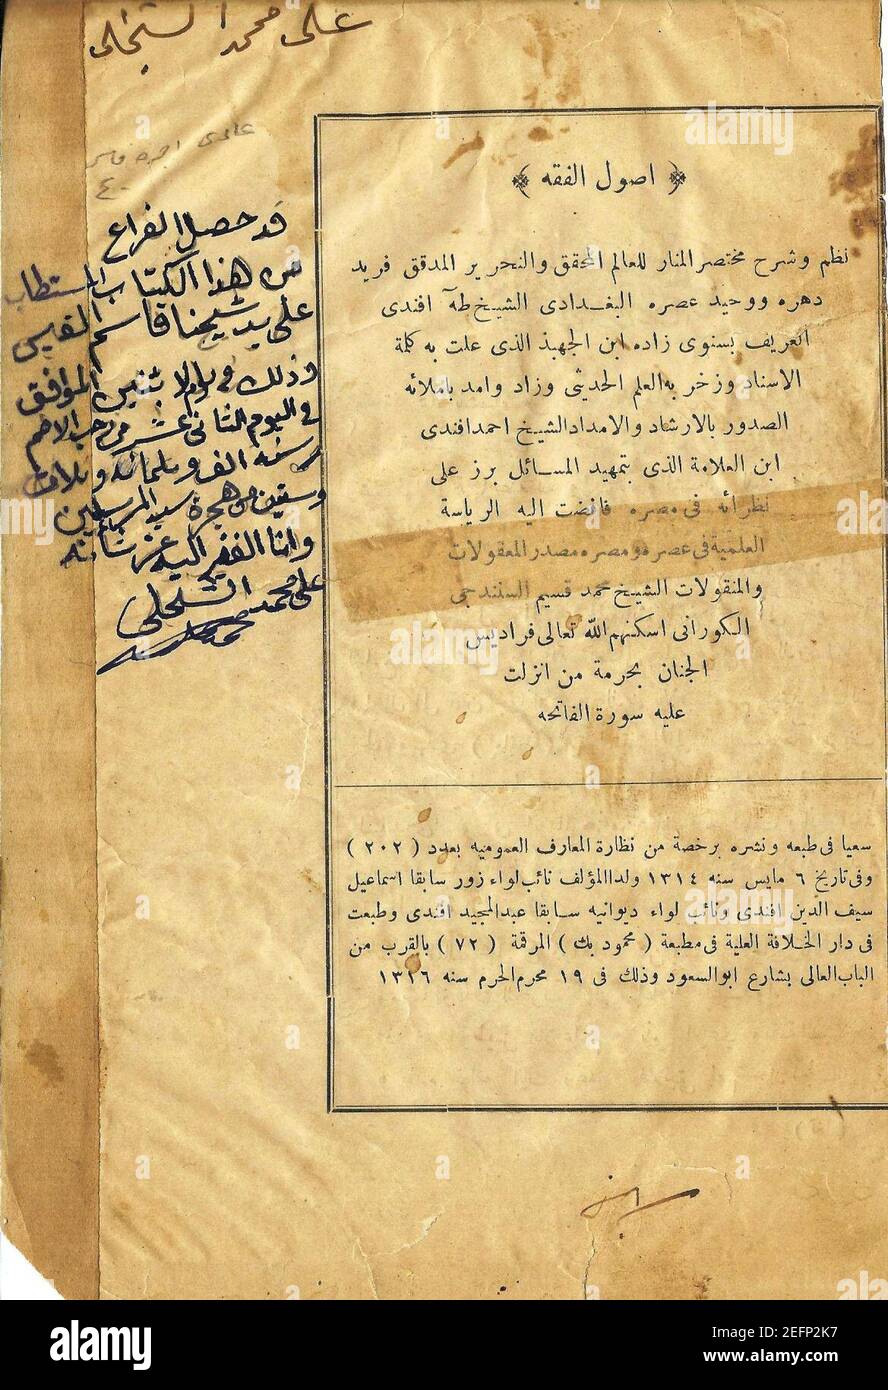 على محمد الشخلى
قد حصل الفراغ
من هذا الكتاب المستطاب
على يد شيخنا قاسم القيسي
وذلك في يوم الاثنين الموافق
في اليوم الثاني عشر من رجب الاصم
سنه الف وثلمائه وثلاث
وستين من هجرة سيد المرسلين
وانا الفقير اليه عز شأنه
على محمد الشخلى
﴿ اصول الفقه ﴾
نظم وشرح مختصر المنار للعالم المحقق والنحرير المدقق فريد
دهره ووحيد عصره البغدادى الشيخ طه افندى
العريف بسنوى زاده ابن الجهبذ الذى علت به كلمة
الاسناد وزخر به العلم الحديثى وزاد وامد باملائه
الصدور بالارشاد والامداد الشيخ احمد افندى
ابن العلامة الذى بتمهيد المسائل برز على
نظرائه فى مصره فافضت اليه الرياسة
العلمية فى عصره ومصره مصدر المعقولات
والمنقولات الشيخ محمد قسيم السنندجى
الكورانى اسكنهم الله تعالى فراديس
الجنان بحرمة من انزلت
عليه سورة الفاتحه
سعيا فى طبعه ونشره برخصة من نظارة المعارف العموميه بعدد ( ٢٠٢ )
وفى تاريخ ٦ مايس سنه ١٣١٤ ولدا المؤلف نائب لواء زور سابقا اسماعيل
سيف الدين افندى ونائب لواء ديوانيه سابقا عبد المجيد افندى وطبعت
فى دار الخلافة العلية فى مطبعة ( محمود بك ) المرقمة ( ٧٢ ) بالقرب من
الباب العالى بشارع ابو السعود وذلك فى ١٩ محرم الحرم سنه ١٣١٦
alamy
Image ID: 2EFP2K7
www.alamy.com